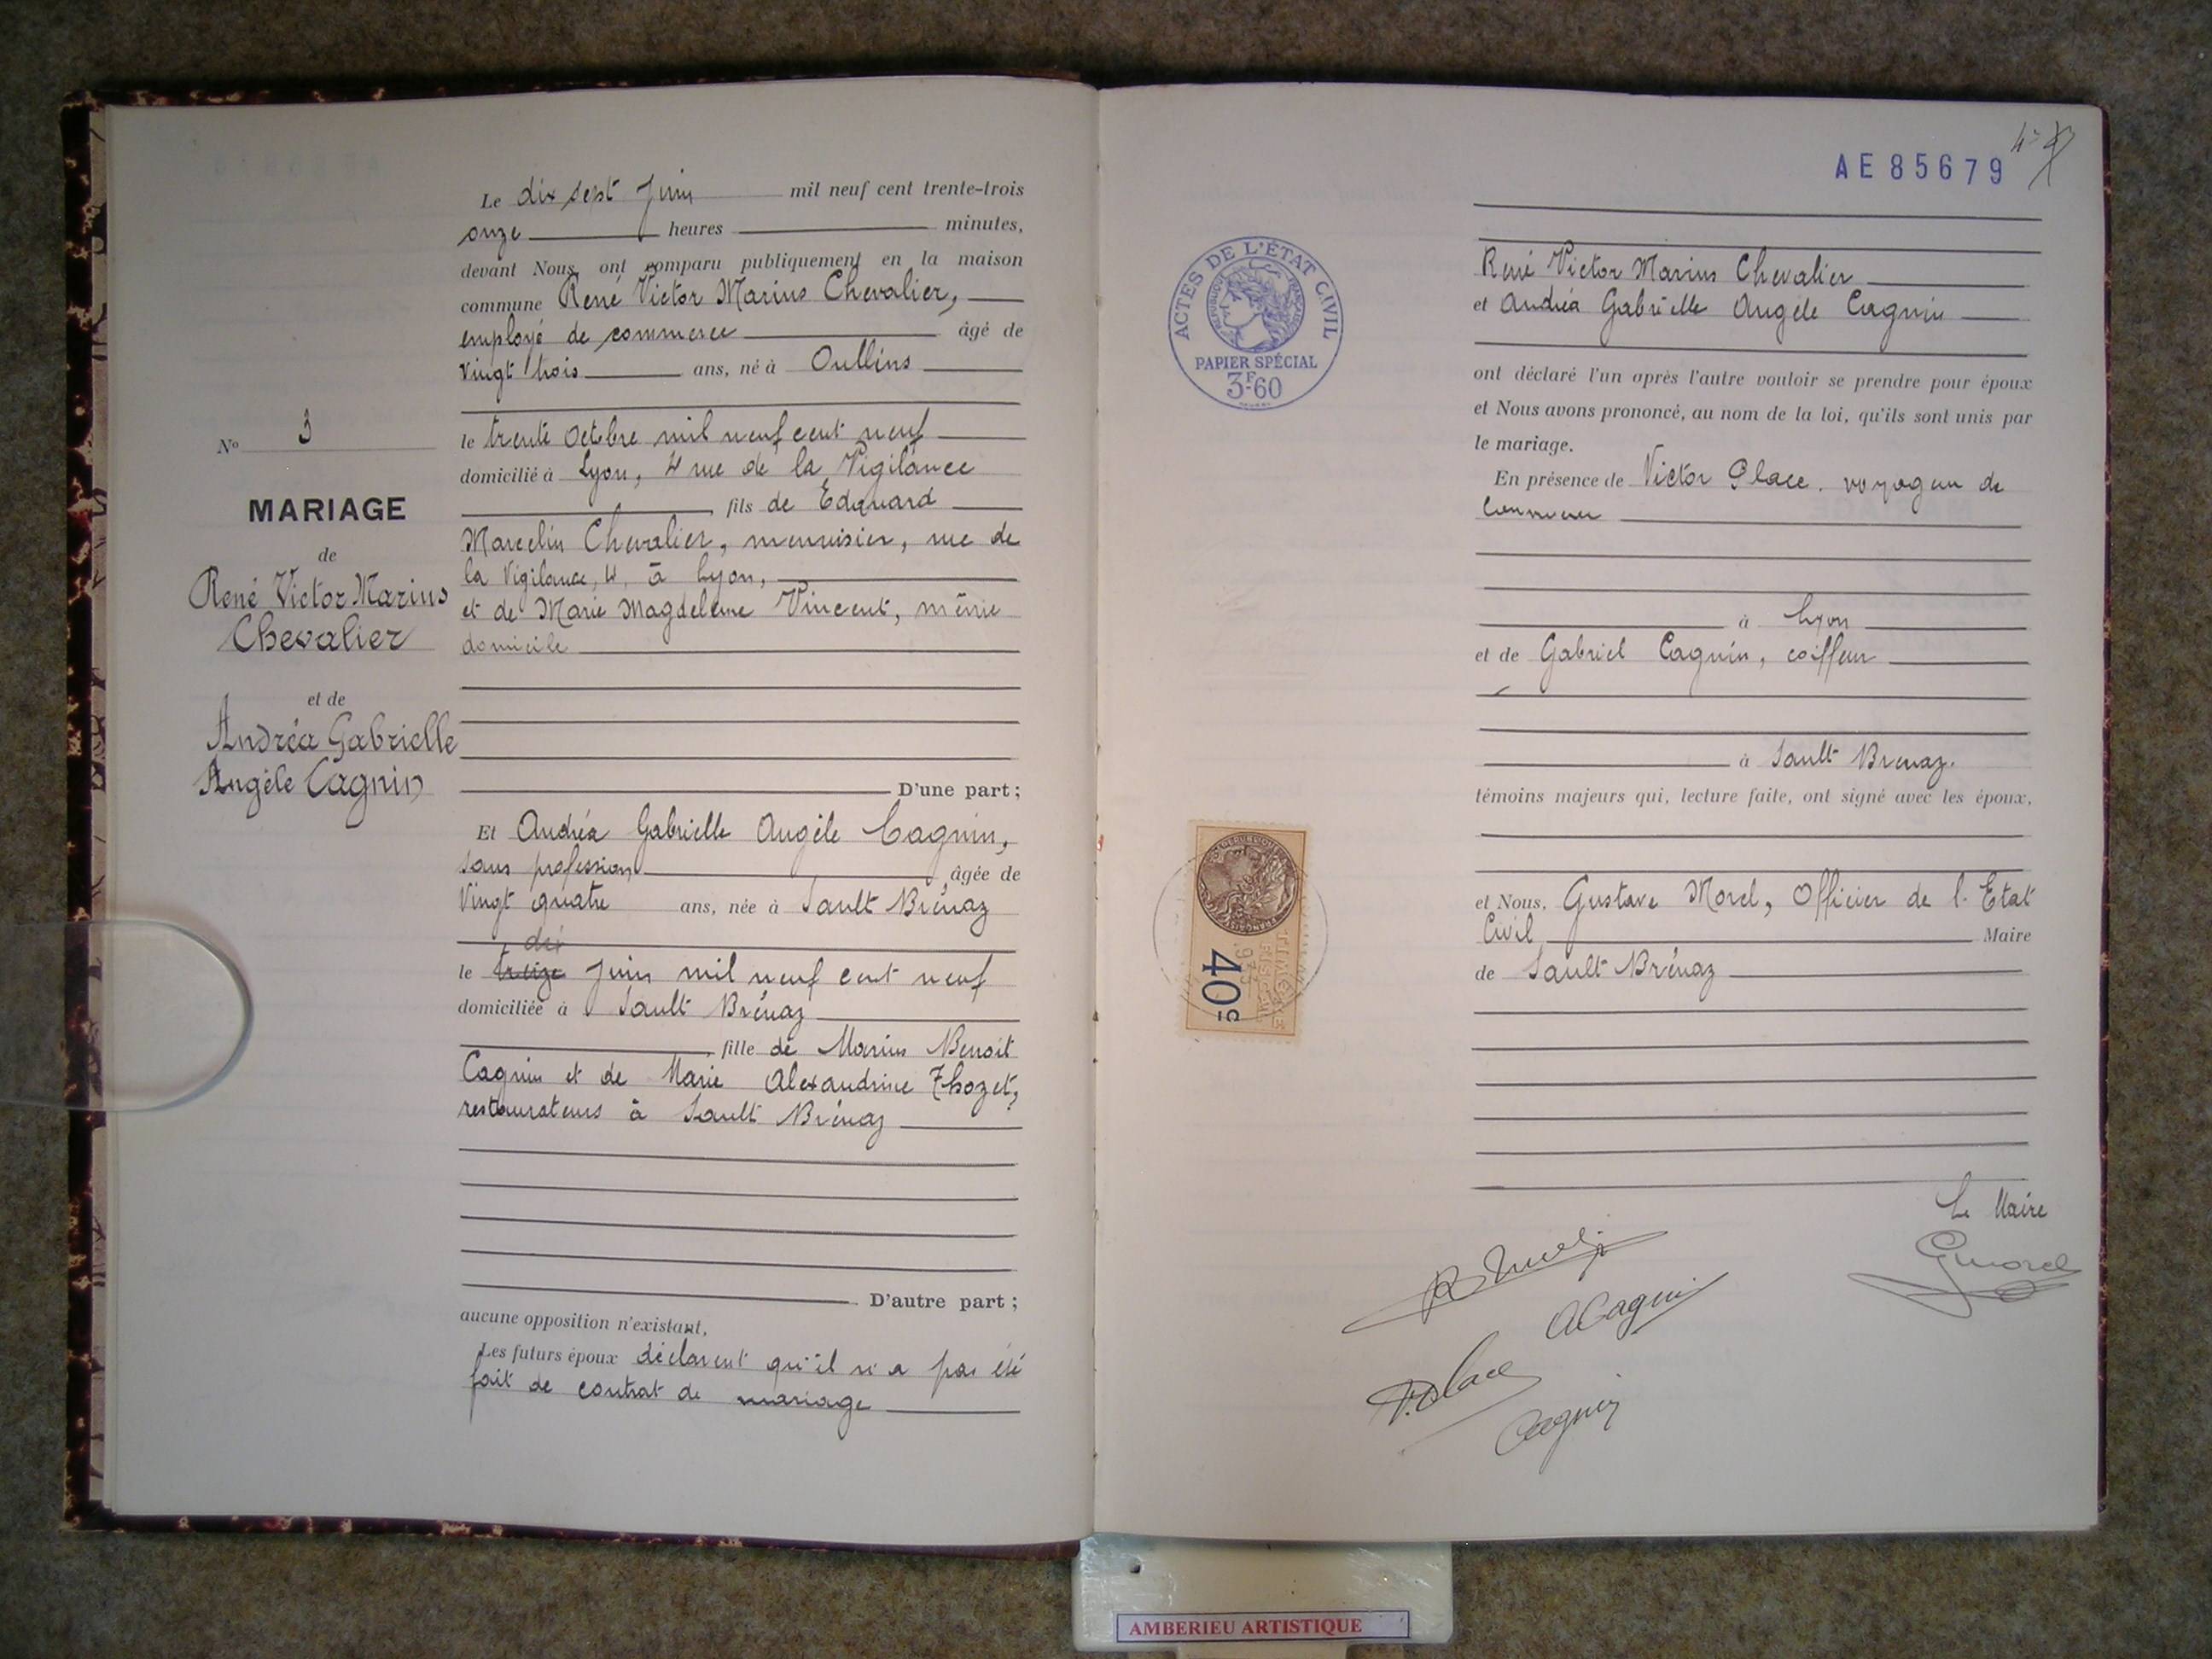 Le dix sept Juin mil neuf cent trente-trois
onze heures minutes,
devant Nous, ont comparu publiquement en la maison
commune René Victor Marius Chevalier,
employé de commerce âgé de
vingt trois ans, né à Oullins
le trente Octobre mil neuf cent neuf
domicilié à Lyon, 4 rue de la Vigilance
, fils de Edouard
Marcelin Chevalier, menuisier, rue de
la Vigilance, 4, à Lyon,
et de Marie Magdeleine Vincent, même
domicile
D'une part ;
Et Andréa Gabrielle Angèle Cagnin,
sans profession, âgée de
Vingt quatre ans, née à Sault Brénaz
le treize Juin mil neuf cent neuf
domiciliée à Sault Brénaz
, fille de Marius Benoit
Cagnin et de Marie Alexandrine Thozet,
restaurateurs à Sault Brénaz
D'autre part ;
aucune opposition n'existant,
Les futurs époux déclarent qu'il n'a pas été
fait de contrat de mariage
No 3
MARIAGE
de
René Victor Marius
Chevalier
et de
Andréa Gabrielle
Angèle Cagnin
AE 85679
ACTES DE L'ÉTAT CIVIL
RÉPUBLIQUE FRANÇAISE
PAPIER SPÉCIAL
3F60
René Victor Marius Chevalier
et Andréa Gabrielle Angèle Cagnin
ont déclaré l'un après l'autre vouloir se prendre pour époux
et Nous avons prononcé, au nom de la loi, qu'ils sont unis par
le mariage.
En présence de Victor Place, voyageur de
commerce
à Lyon
et de Gabriel Cagnin, coiffeur
à Sault Brenaz.
témoins majeurs qui, lecture faite, ont signé avec les époux,
et Nous, Gustave Morel, Officier de l'Etat
Civil, Maire
de Sault Brénaz
40c
TIMBRE
FISCAL
Le Maire
GMorel
ACagnin
V. Place
Cagnin
AMBERIEU ARTISTIQUE